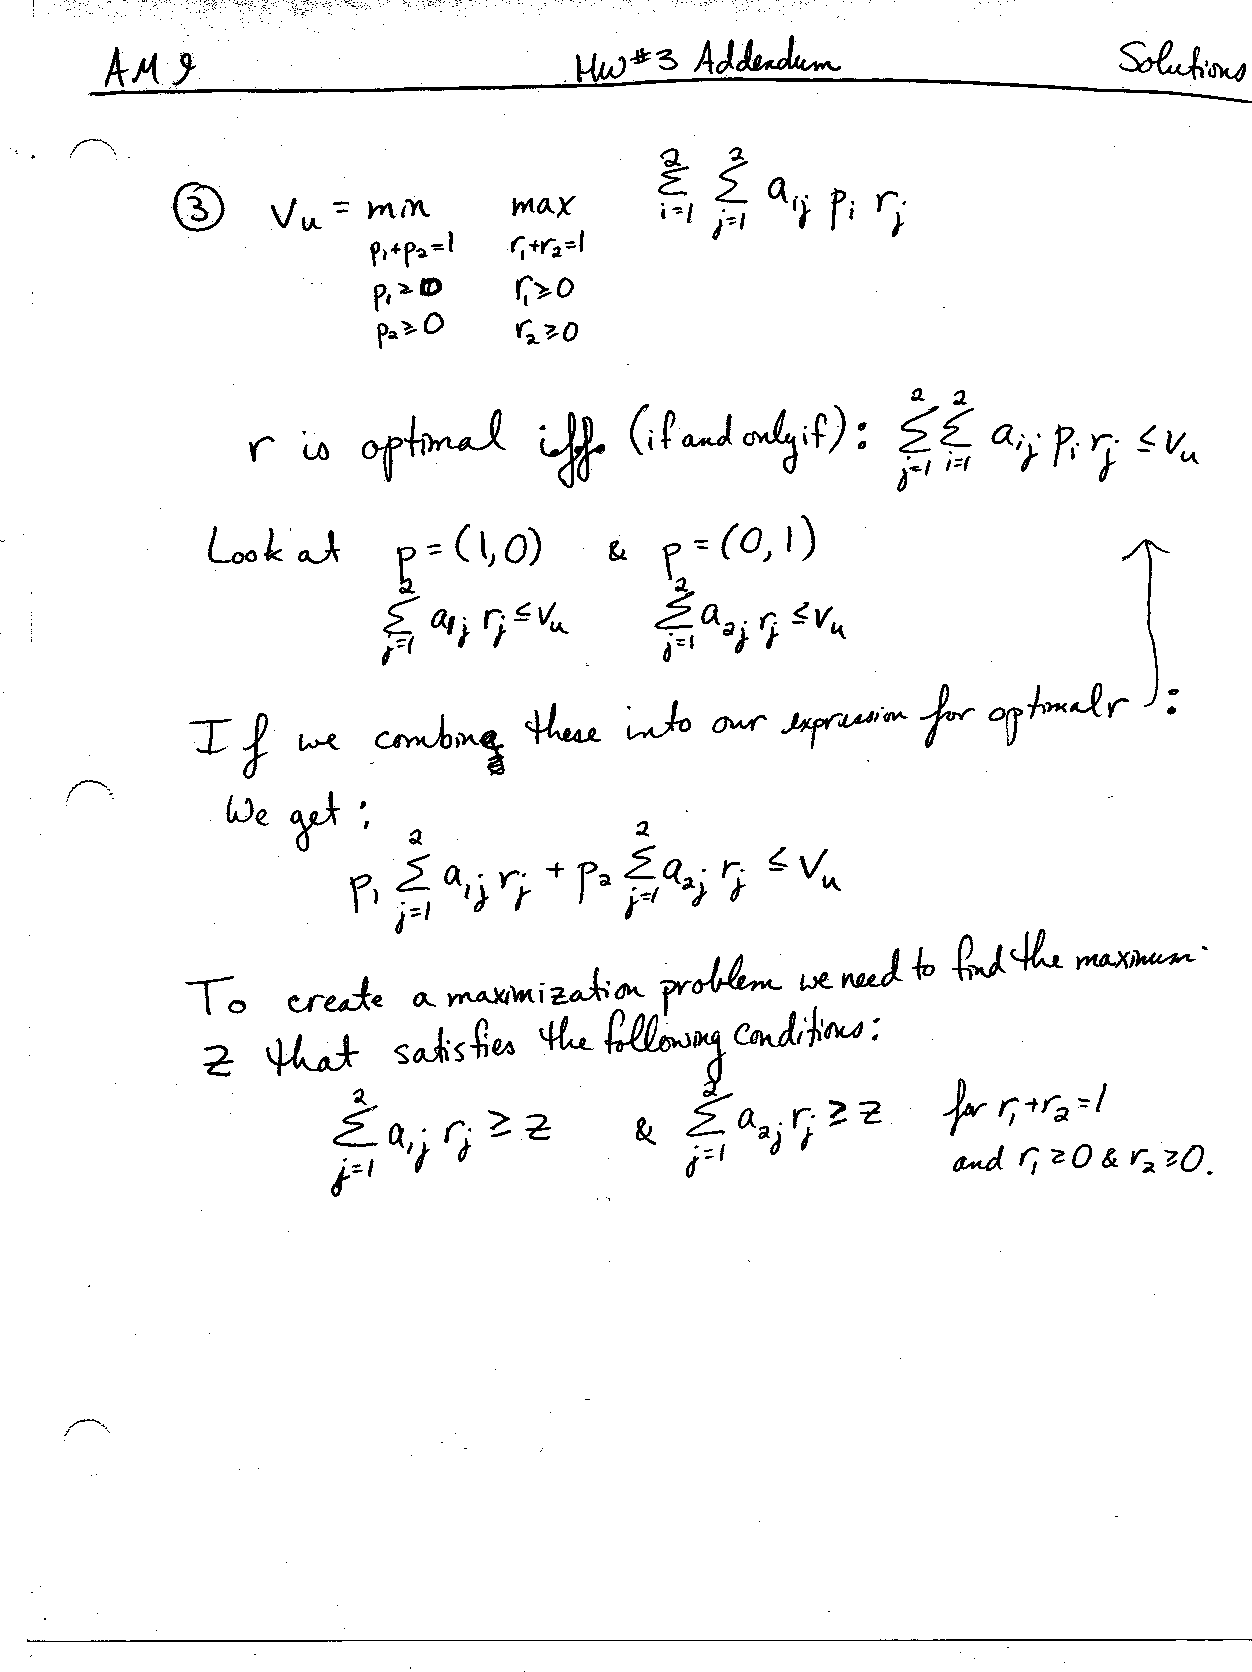 AM 9 HW#3 Addendum Solutions
③ Vu = min max Σ_{i=1}^{2} Σ_{j=1}^{2} aij pi rj
p1+p2=1 r1+r2=1
p1≥0 r1≥0
p2≥0 r2≥0
r is optimal iff. (if and only if): Σ_{j=1}^{2} Σ_{i=1}^{2} aij pi rj ≤ Vu
Look at p=(1,0) & p=(0,1)
Σ_{j=1}^{2} a1j rj ≤ Vu Σ_{j=1}^{2} a2j rj ≤ Vu
If we combine these into our expression for optimal r :
We get:
p1 Σ_{j=1}^{2} a1j rj + p2 Σ_{j=1}^{2} a2j rj ≤ Vu
To create a maximization problem we need to find the maximum
z that satisfies the following conditions:
Σ_{j=1}^{2} a1j rj ≥ z & Σ_{j=1}^{2} a2j rj ≥ z for r1+r2=1
and r1≥0 & r2≥0.